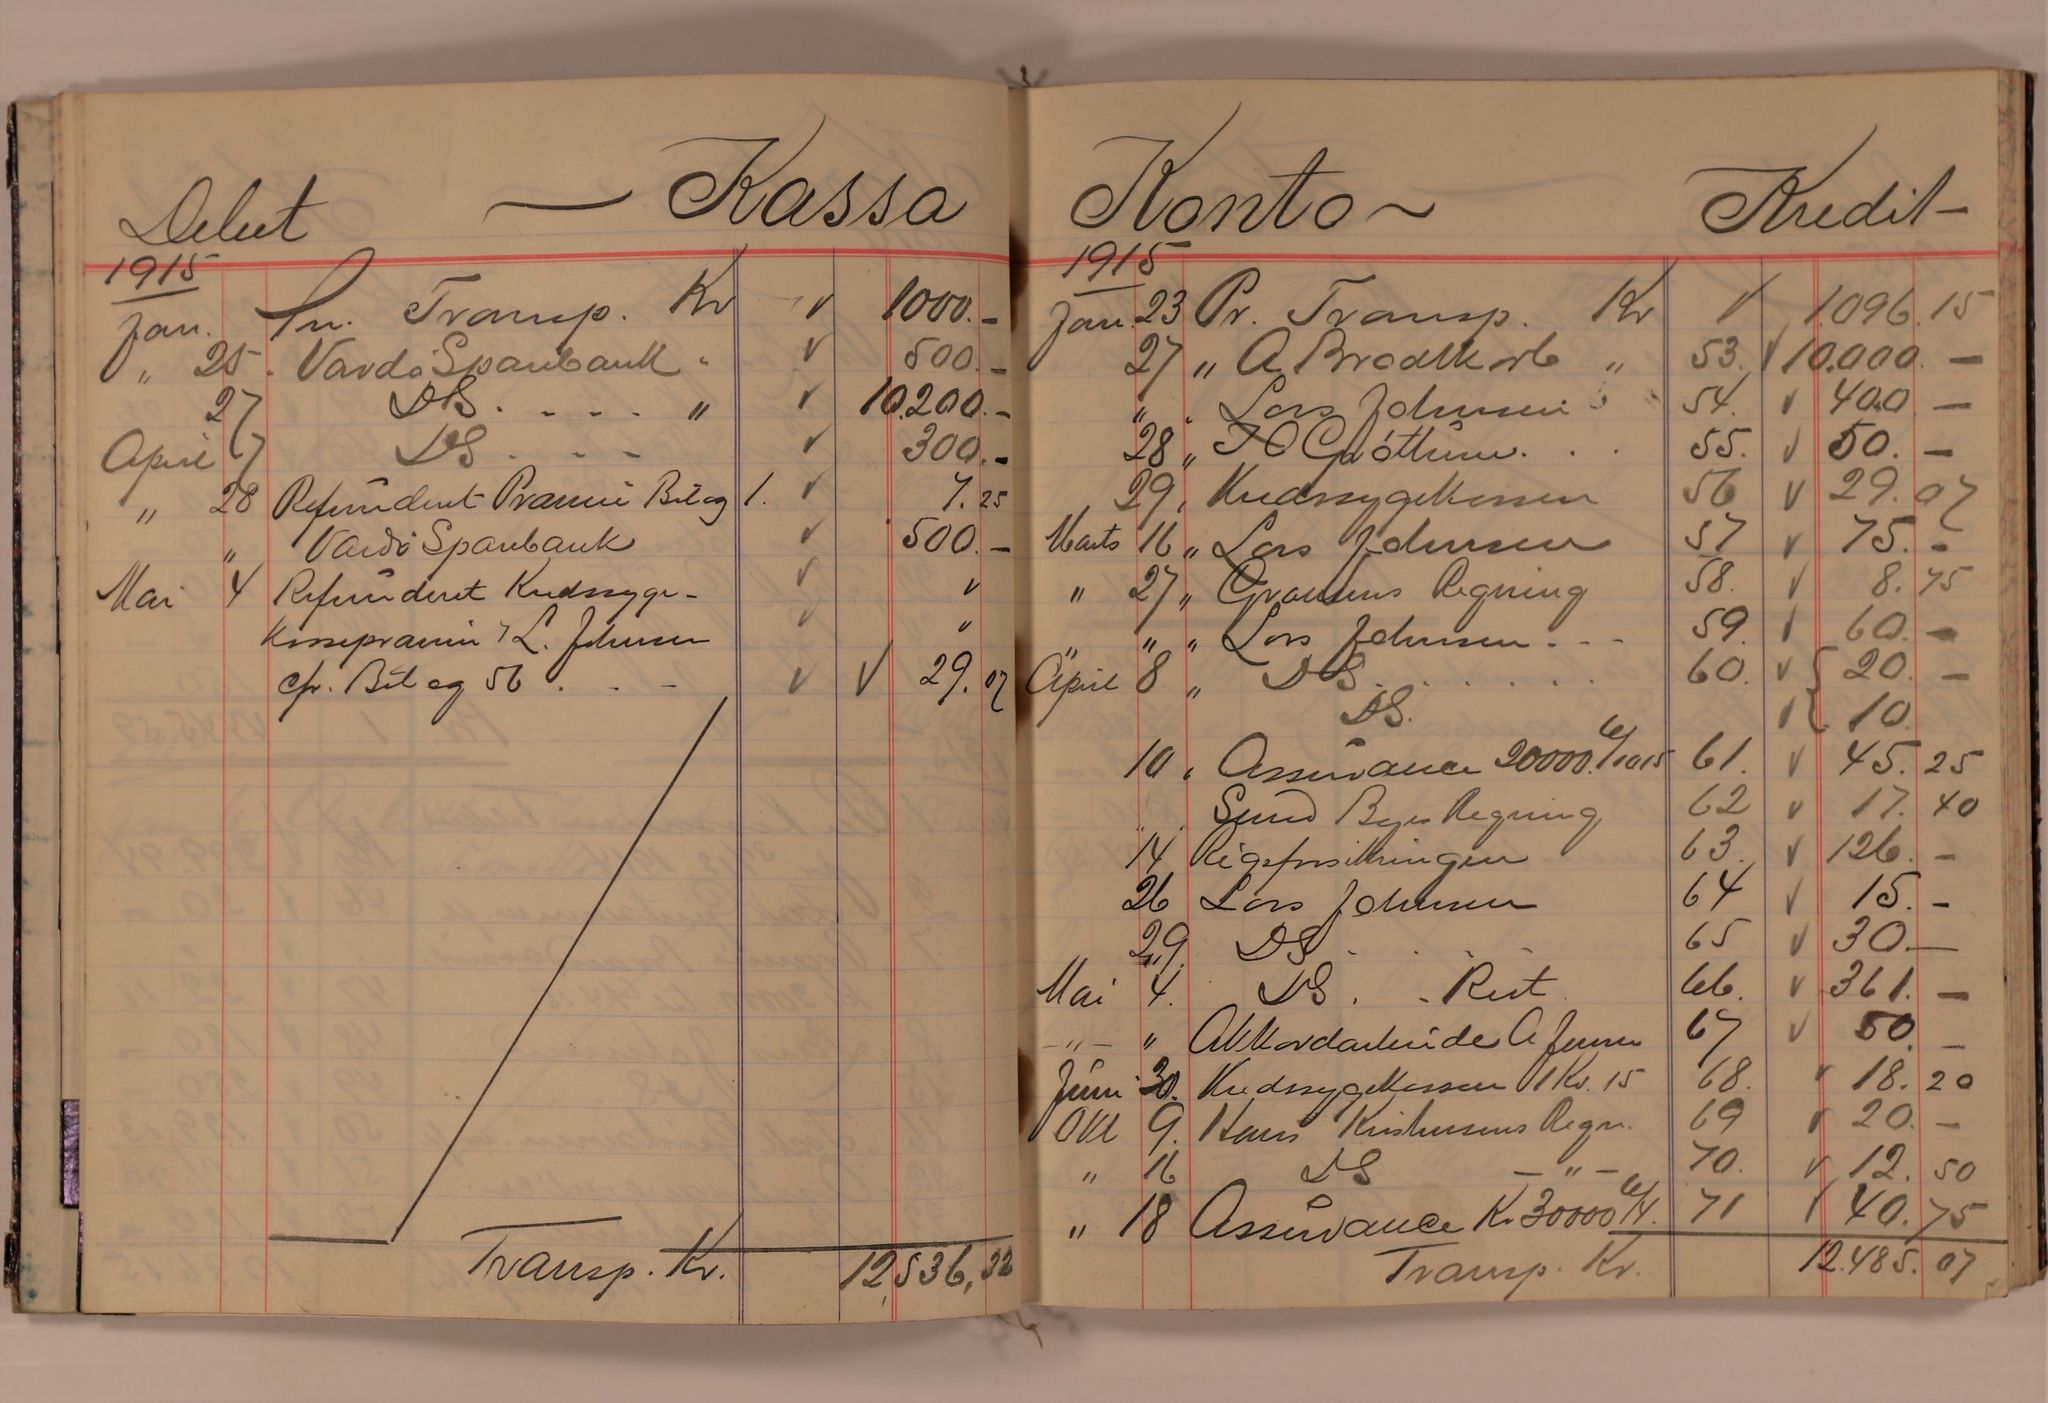 Debet — Kassa
1915
Jan. Pr. Transp. Kr √ 1000.–
" 25. Vardö Sparebank " √ 500.–
27 DS. . . . . " √ 10.200.–
April 7 DS . . . √ 300.–
" 28 Refunderet Præmie Bilag 1. √ 7.25
" Vardö Sparebank √ 500.–
Mai 4 Refunderet Kredssyge- √ "
kassepræmie L. Johnsen √ "
cfr. Bilag 56 . . . √ √ 29.07
Transp. Kr. 12,536,32
Konto ~ Kredit –
1915
Jan. 23 Pr. Transp. Kr √ 1.096.15
27 " A Brodtkorb " 53. √ 10.000. –
" " Lars Johnsen 54. √ 400 –
28 " 55. √ 50. –
29 " Kredssygekassen 56 √ 29.07
Marts 16 " Lars Johnsen 57 √ 75. –
" 27 " Regning 58. √ 8.75
" " " Lars Johnsen . . . 59. √ 60. –
April 8 " DS. . . . . . . 60. √ 20. –
DS. √ 10.
10 " Assurance 20000. 61. √ 45.25
Sund Regning 62 √ 17.40
14 Rigsforsikringen 63. √ 126. –
26 Lars Johnsen 64 √ 15. –
29. DS. . 65 √ 30. –
Mai 4. DS. . Rest 66. √ 361. –
" " Akkordarbeide A Jensen 67 √ 50. –
Juni 30. Kredssygekassen 1 Kv. 15 68. √ 18.20
Okt 9. Hans Kristensens Regn. 69 √ 20. –
" 16 DS – " – 70. √ 12.50
" 18 Assurance Kr 30000 71 √ 40.75
Transp. Kr. 12.485.07